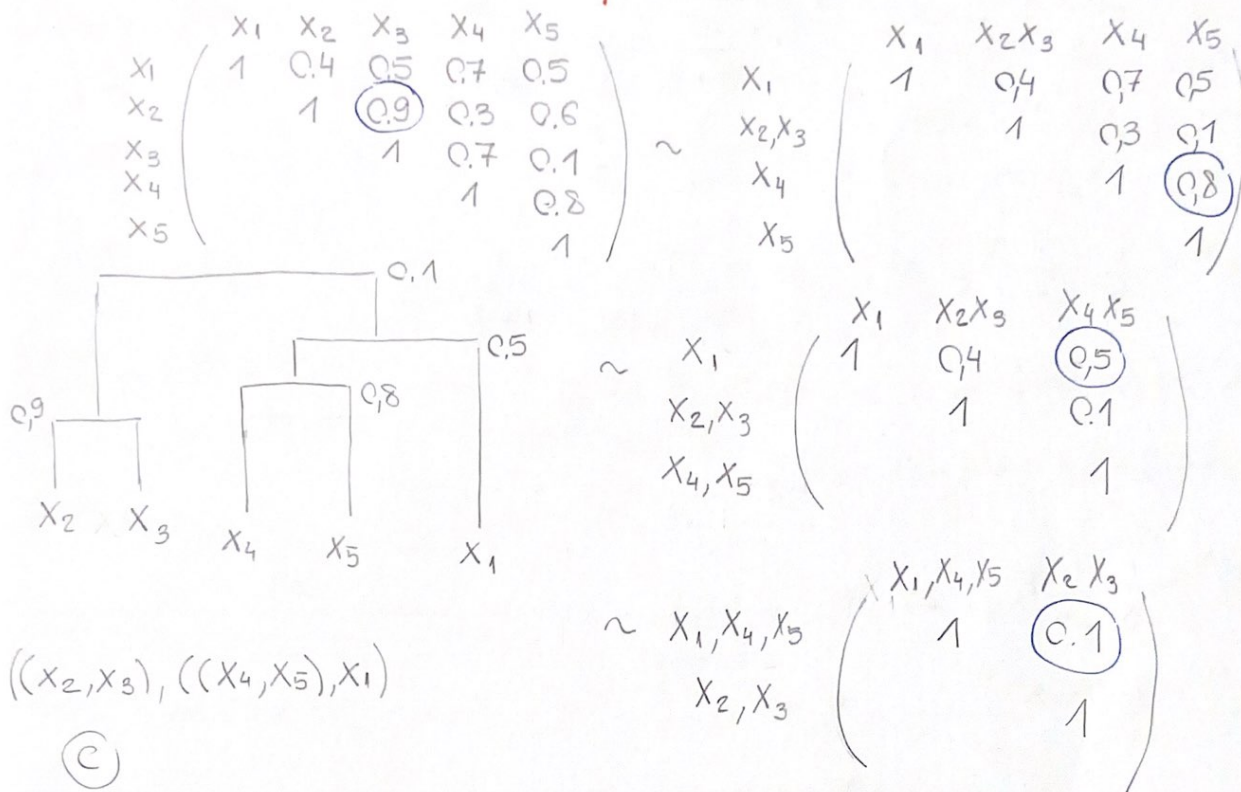 X1 X2 X3 X4 X5
X1 1 0.4 0.5 0.7 0.5
X2 1 0.9 0.3 0.6
X3 1 0.7 0.1
X4 1 0.8
X5 1
~
X1 X2X3 X4 X5
X1 1 0,4 0,7 0,5
X2,X3 1 0,3 0,1
X4 1 0,8
X5 1
0.1
0.5
0,8
0,9
X2 X3 X4 X5 X1
~
X1 X2X3 X4X5
X1 1 0,4 0,5
X2,X3 1 0.1
X4,X5 1
~
X1,X4,X5 X2X3
X1,X4,X5 1 0.1
X2,X3 1
((X2,X3),((X4,X5),X1)
C